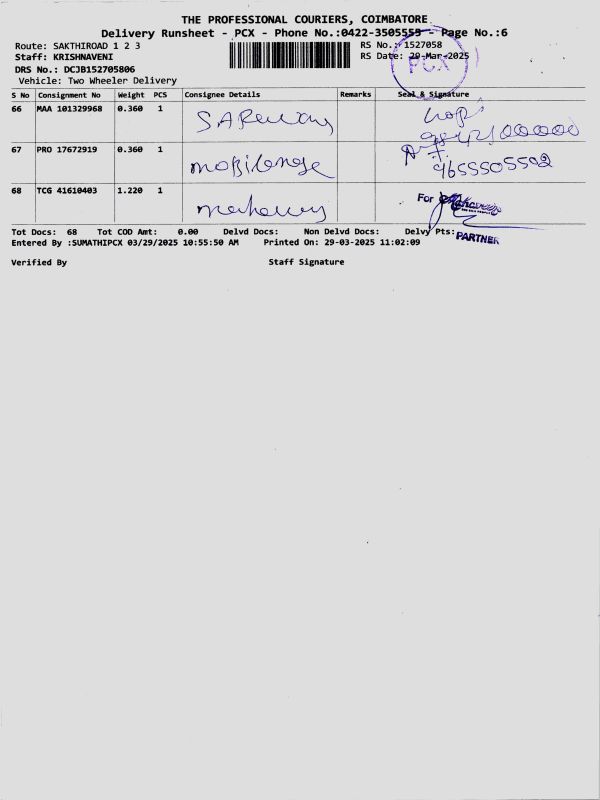 THE PROFESSIONAL COURIERS, COIMBATORE
Delivery Runsheet - PCX - Phone No.:0422-3505555 - Page No.:6
Route: SAKTHIROAD 1 2 3
RS No.: 1527058
Staff: KRISHNAVENI
RS Date: 29-Mar-2025
PCX
DRS No.: DCJB152705806
Vehicle: Two Wheeler Delivery
S No Consignment No Weight PCS Consignee Details Remarks Seal & Signature
66 MAA 101329968 0.360 1
67 PRO 17672919 0.360 1
9655505502
68 TCG 41610403 1.220 1
For
PARTNER
Tot Docs: 68 Tot COD Amt: 0.00 Delvd Docs: Non Delvd Docs: Delvy Pts:
Entered By :SUMATHIPCX 03/29/2025 10:55:50 AM Printed On: 29-03-2025 11:02:09
Verified By Staff Signature